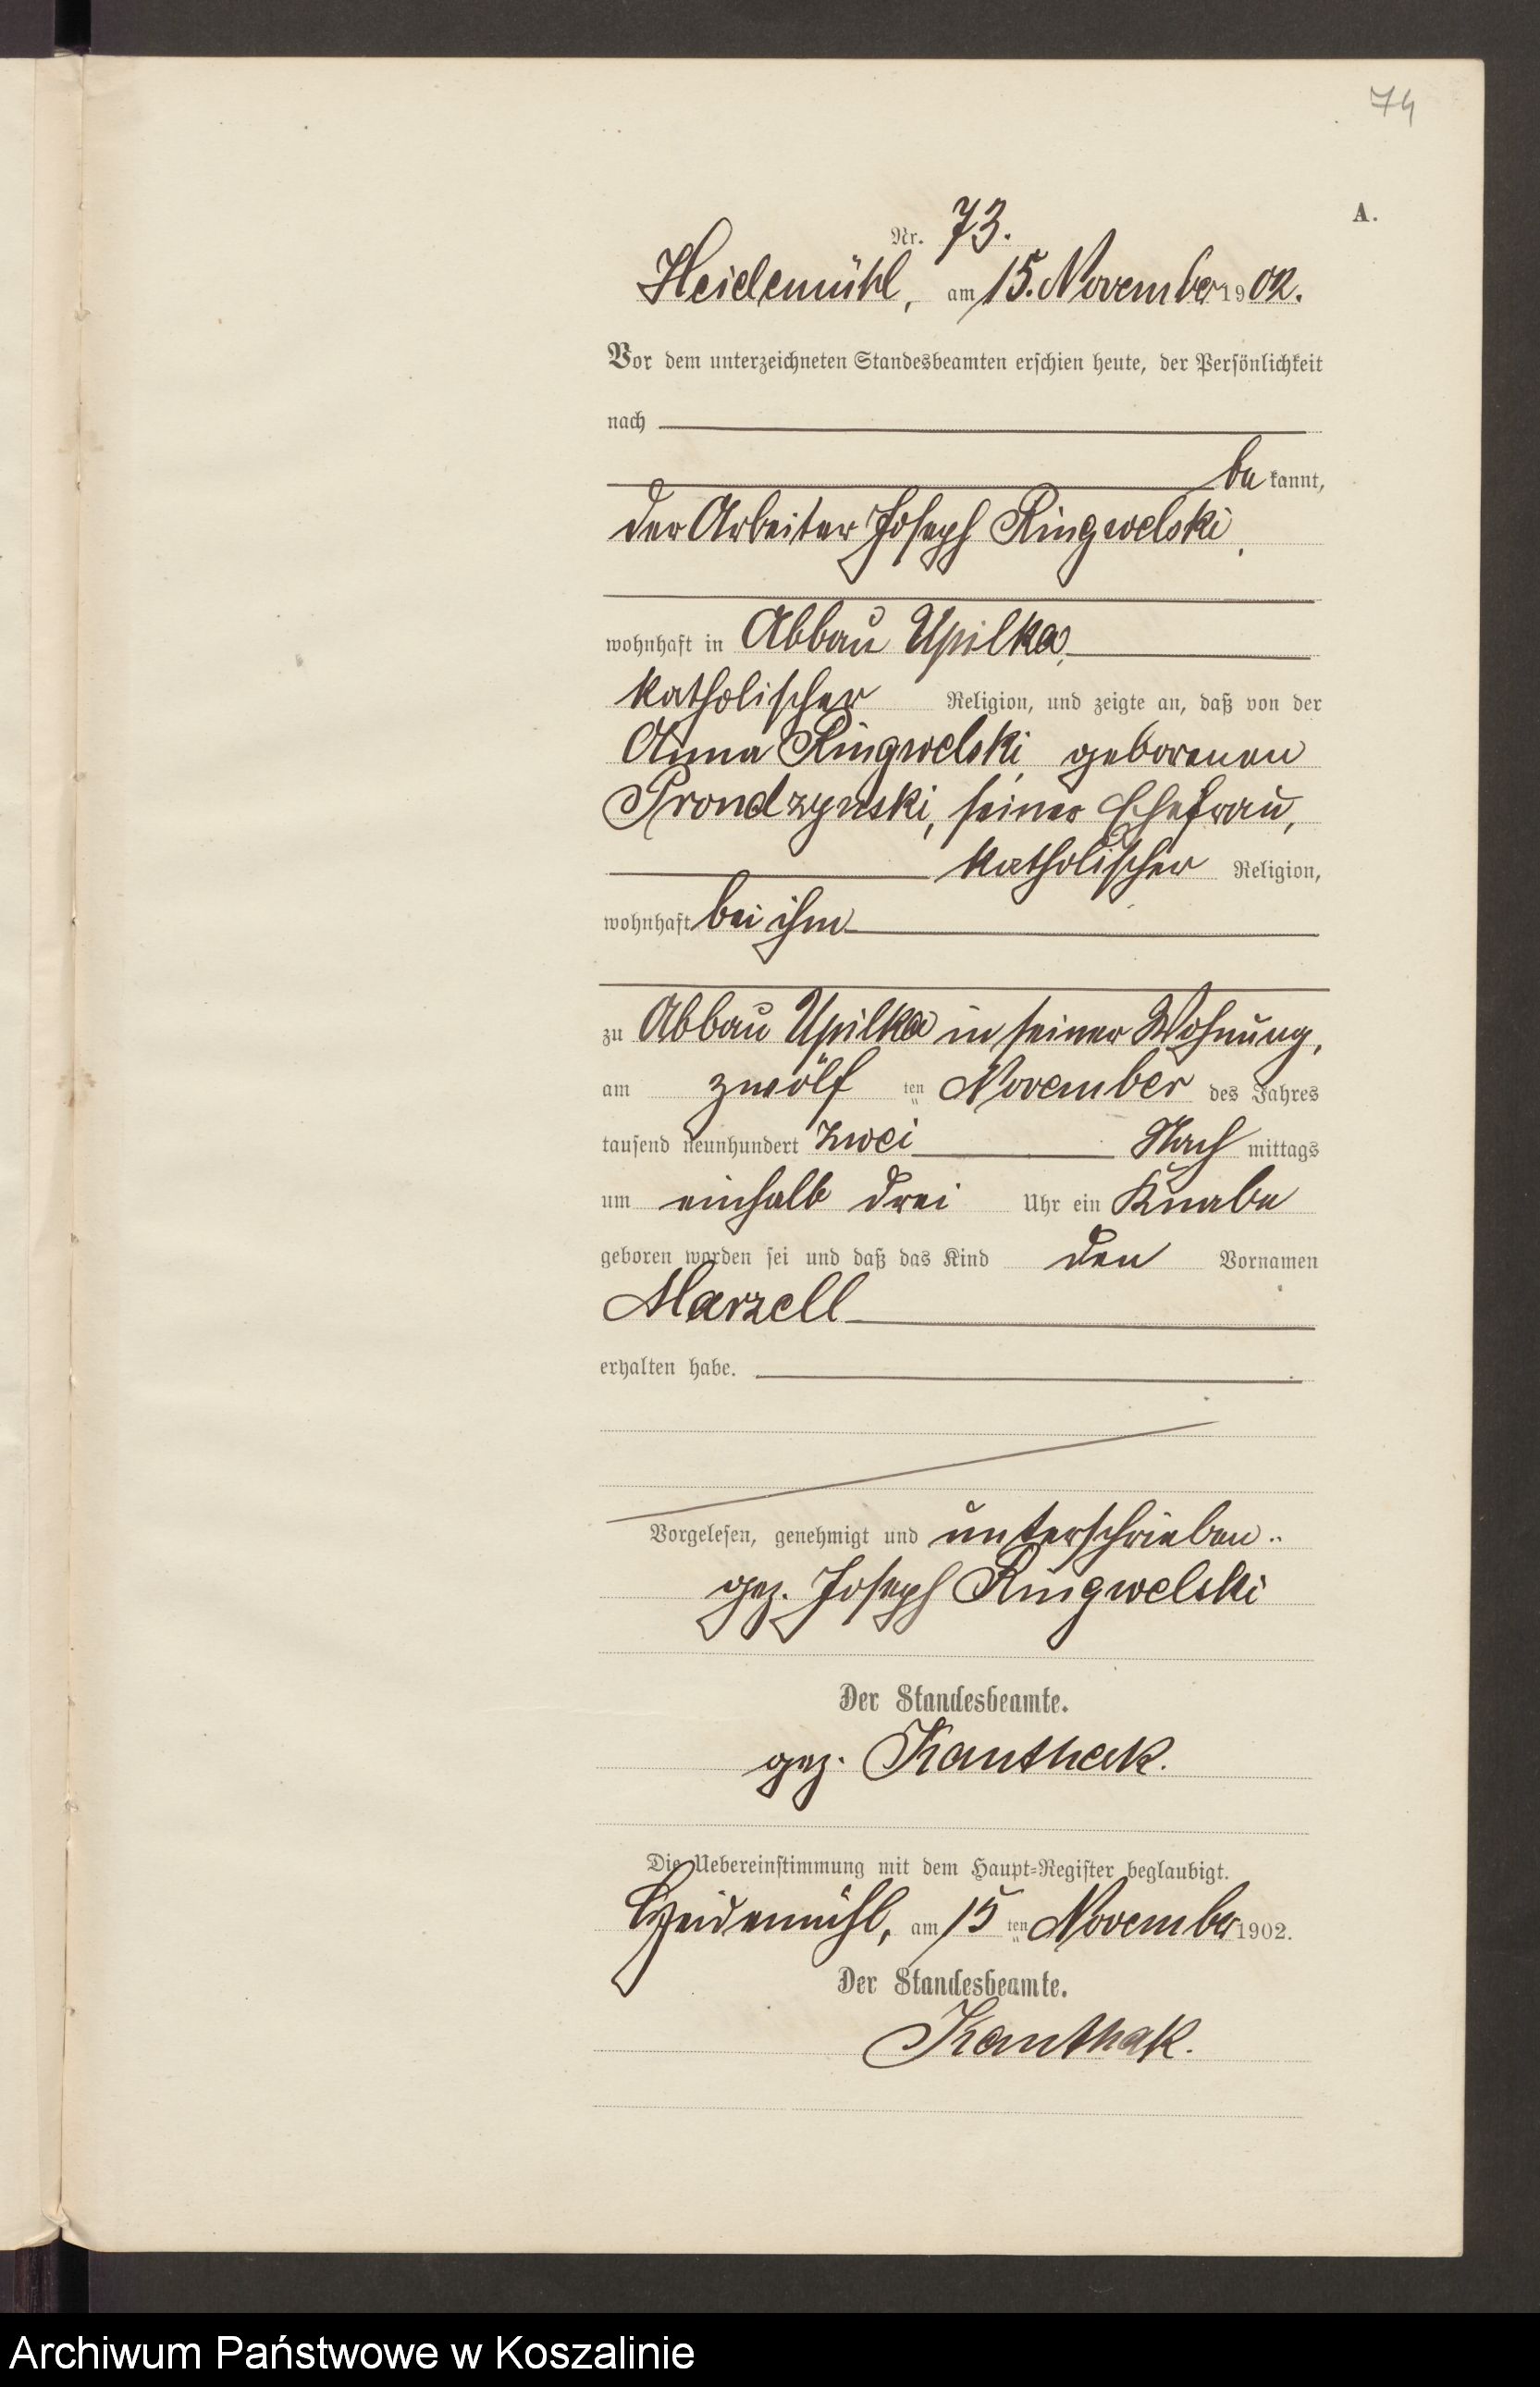 74
A.
Nr. 73.
Heidemühl, am 15. November 1902.
Vor dem unterzeichneten Standesbeamten erschien heute, der Persönlichkeit
nach
be kannt,
der Arbeiter Joseph Ringwelski,
wohnhaft in Abbau Upilka,
katholischer Religion, und zeigte an, daß von der
Anna Ringwelski geborenen
Prondzynski, seiner Ehefrau,
katholischer Religion,
wohnhaft bei ihm
zu Abbau Upilka in seiner Wohnung,
am zwölf ten November des Jahres
tausend neunhundert zwei Nach mittags
um einhalb drei Uhr ein Knabe
geboren worden sei und daß das Kind den Vornamen
Marzell
erhalten habe.
Vorgelesen, genehmigt und unterschrieben.
gez. Joseph Ringwelski
Der Standesbeamte.
gez. Kanthak.
Die Uebereinstimmung mit dem Haupt-Register beglaubigt.
Heidemühl, am 15 ten November 1902.
Der Standesbeamte.
Kanthak.
Archiwum Państwowe w Koszalinie